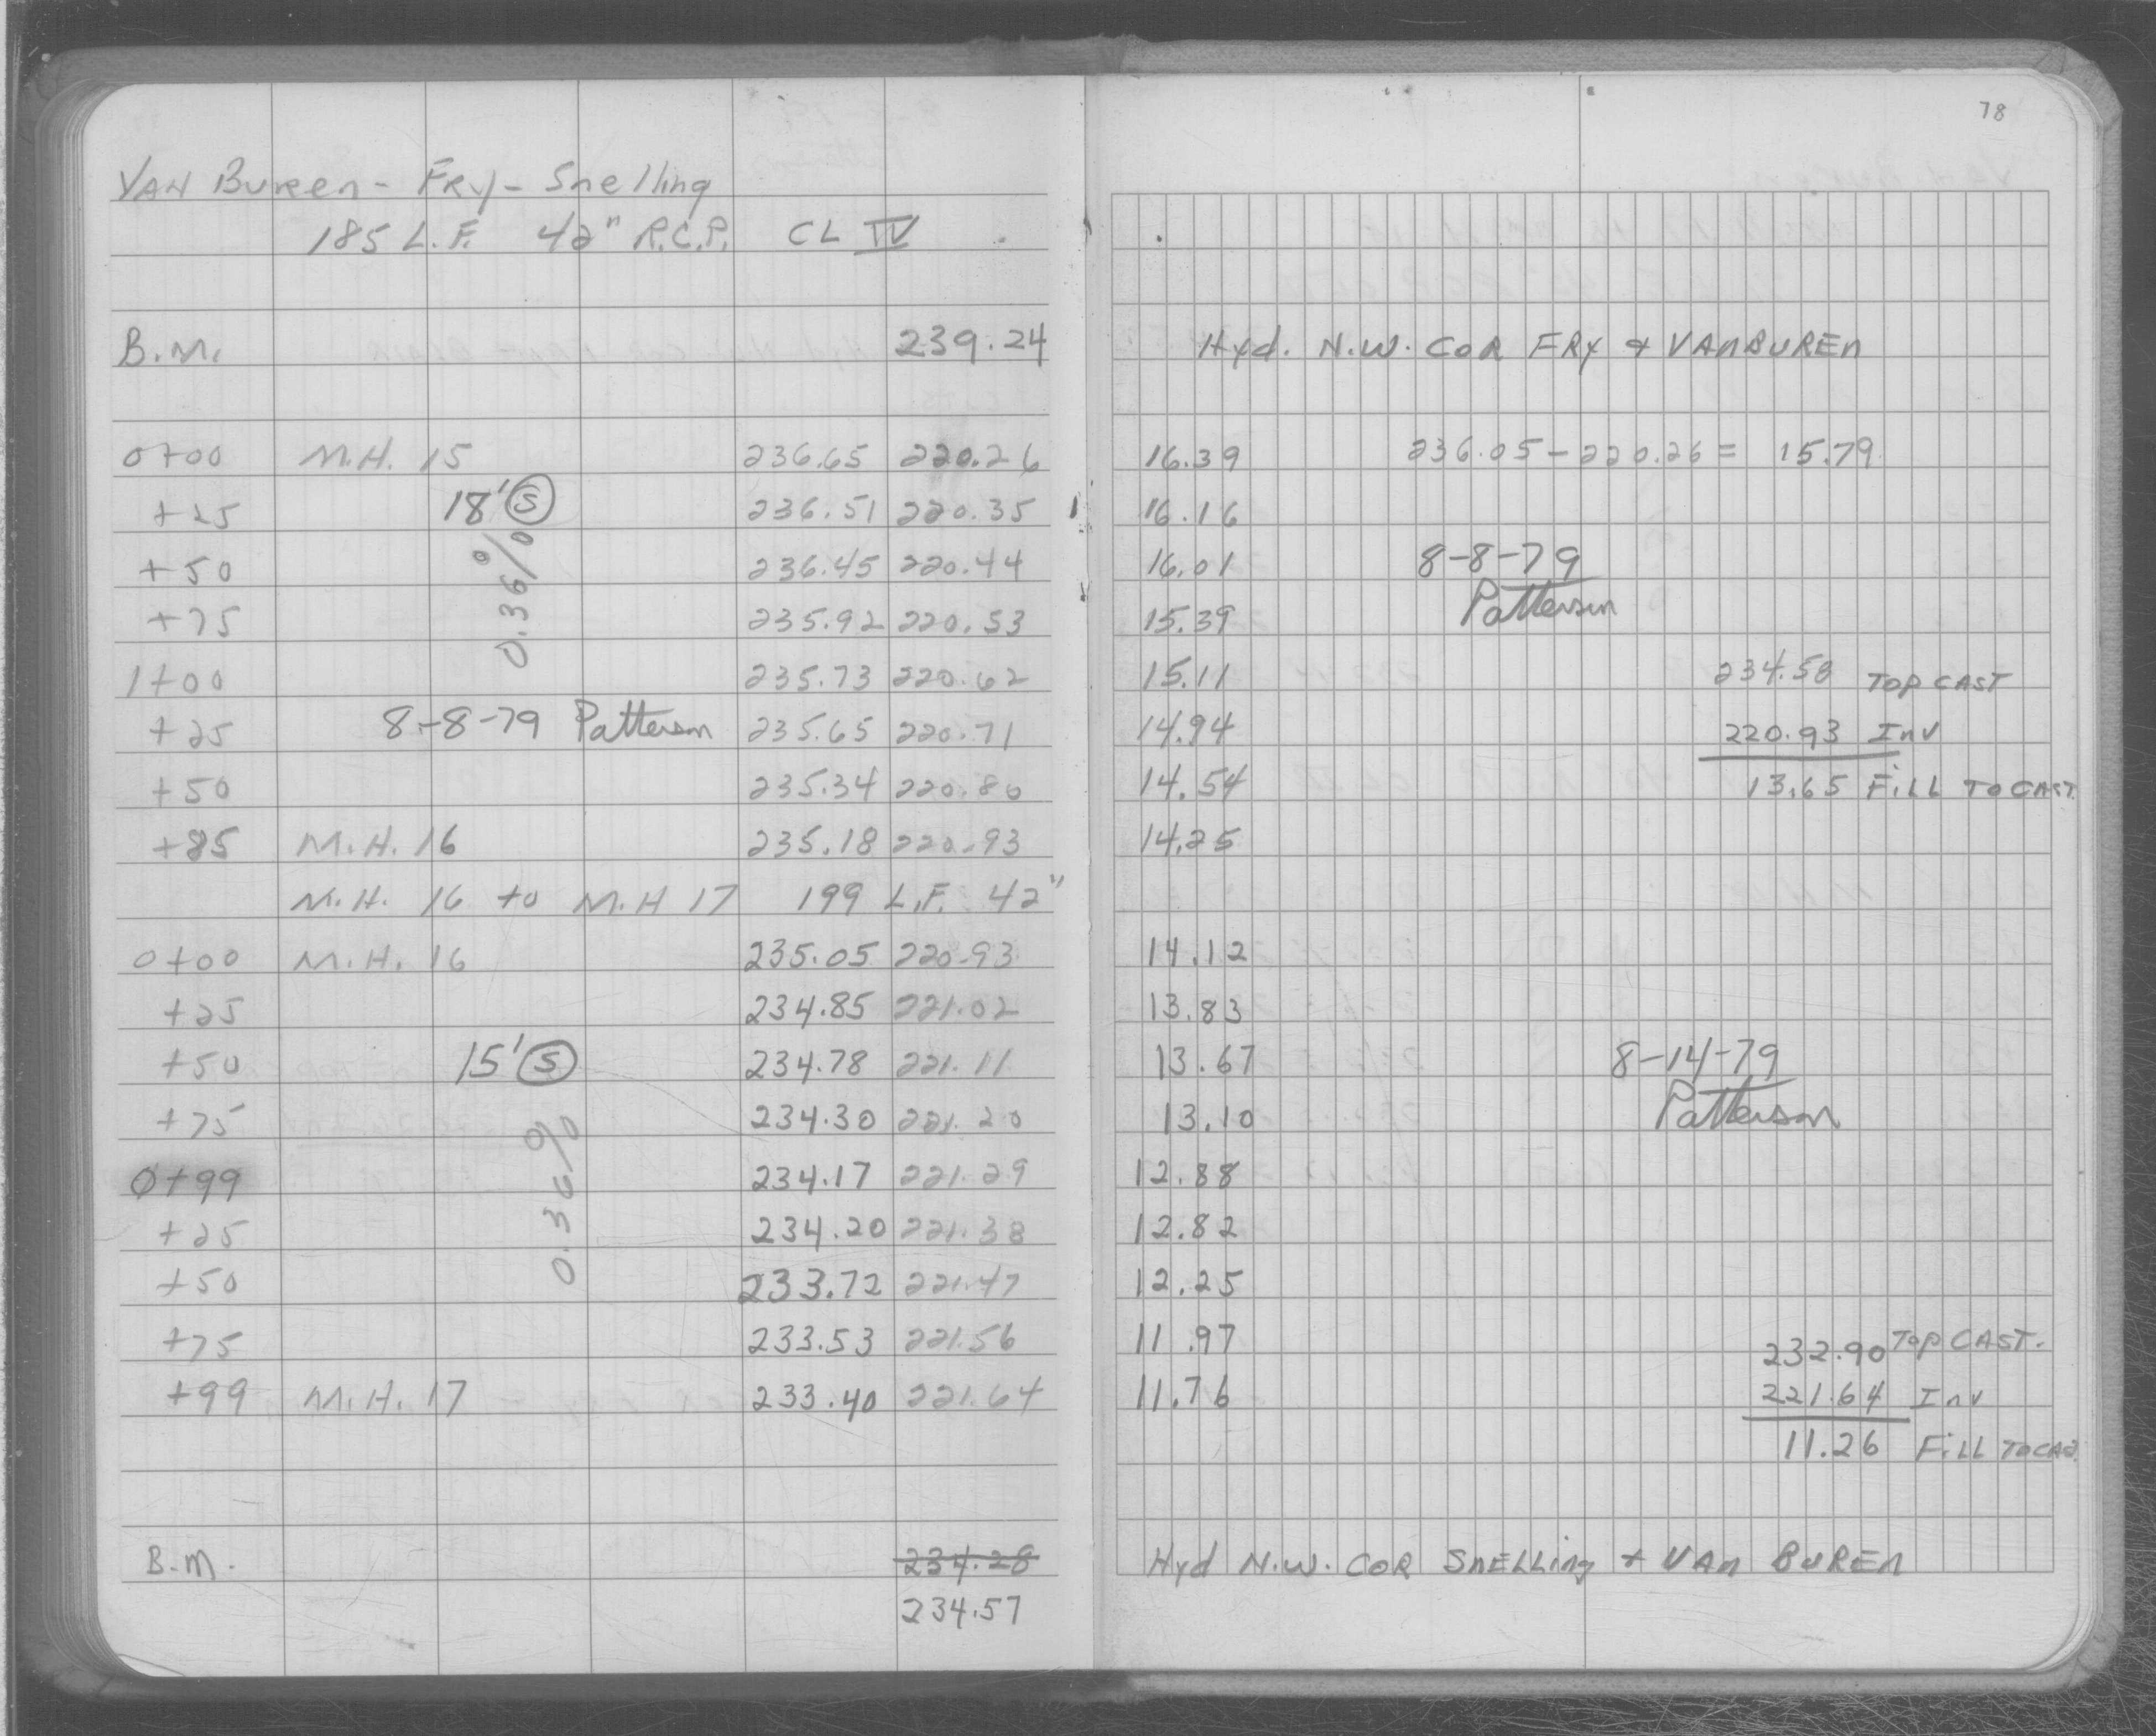 78
VAN Buren - FRY - Snelling
185 L.F. 42" R.C.P. CL IV
B.M. 239.24 Hyd. N.W. COR FRY + VANBUREN
0+00 M.H. 15 236.65 220.26 16.39 236.05 - 220.26 = 15.79
+25 18' S 236.51 220.35 16.16
+50 236.45 220.44 16.01 8-8-79
0.36%
+75 235.92 220.53 15.39 Patterson
1+00 235.73 220.62 15.11 234.58 TOP CAST
+25 8-8-79 Patterson 235.65 220.71 14.94 220.93 Inv
+50 235.34 220.80 14.54 13.65 FILL TO CAST
+85 M.H. 16 235.18 220.93 14.25
M.H. 16 to M.H 17 199 L.F. 42"
0+00 M.H. 16 235.05 220.93 14.12
+25 234.85 221.02 13.83
+50 15' S 234.78 221.11 13.67 8-14-79
+75 234.30 221.20 13.10 Patterson
0.36%
0+99 234.17 221.29 12.88
+25 234.20 221.38 12.82
+50 233.72 221.47 12.25
+75 233.53 221.56 11.97 232.90 TOP CAST.
+99 M.H. 17 233.40 221.64 11.76 221.64 Inv
11.26 FILL TO CAS
B.M. 234.28 Hyd N.W. COR SNELLing + VAn BUREn
234.57